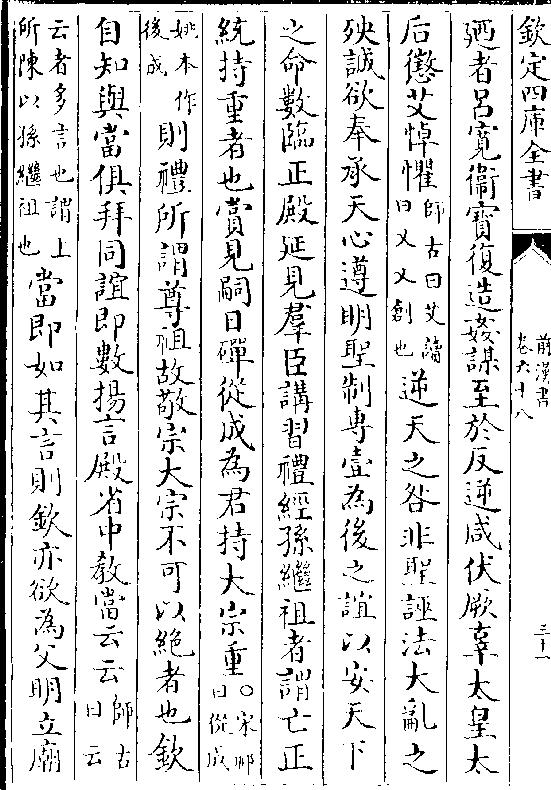 欽定四庫全書
前漢書
卷六十八
三十一
廼者呂寛衞寳復造姦謀至於反逆咸伏厥辜太皇太
后懲艾悼懼師古曰艾讀曰乂乂創也逆天之咎非聖誣法大亂之
殃誠欲奉承天心遵明聖制專壹為後之誼以安天下
之命數臨正殿延見羣臣講習禮經孫繼祖者謂亡正
統持重者也賞見嗣日磾從成為君持大宗重○宋祁曰從成
姚本作後成則禮所謂尊祖故敬宗大宗不可以絶者也欽
自知與當俱拜同誼即數揚言殿省中教當云云師古曰云
云者多言也謂上所陳以孫繼祖也當即如其言則欽亦欲為父明立廟